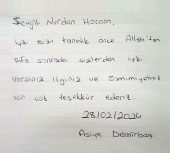 Sevgili Nurdan Hocam,
iyki sizi tanıdık önce Allah'tan
Şifa sonrada sizlerden
Varsınız ilginiz ve Samimiyetiniz
için çok teşekkür ederiz.
28/02/2024
Asiye Demirbaş